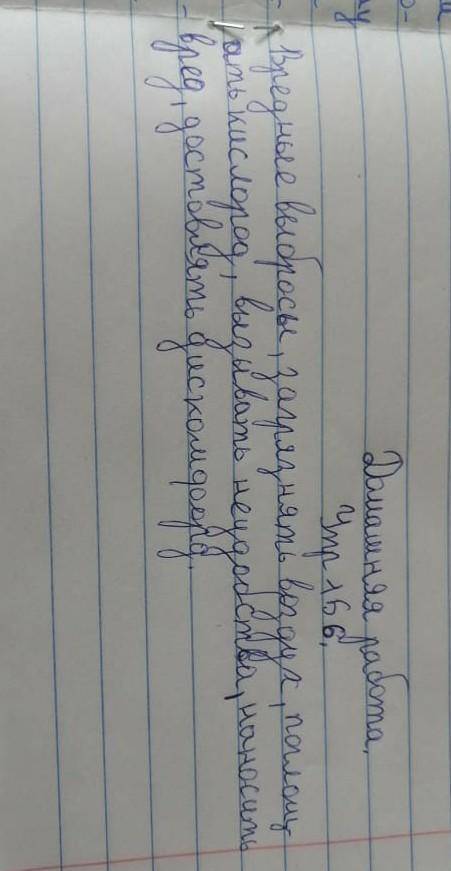 Домашняя работа.
Упр 156.
Вредные выбросы, загрязнять воздух, поглощ
ать кислород, вызывать неудобства, наносить
вред, доставлять дискомфорд.